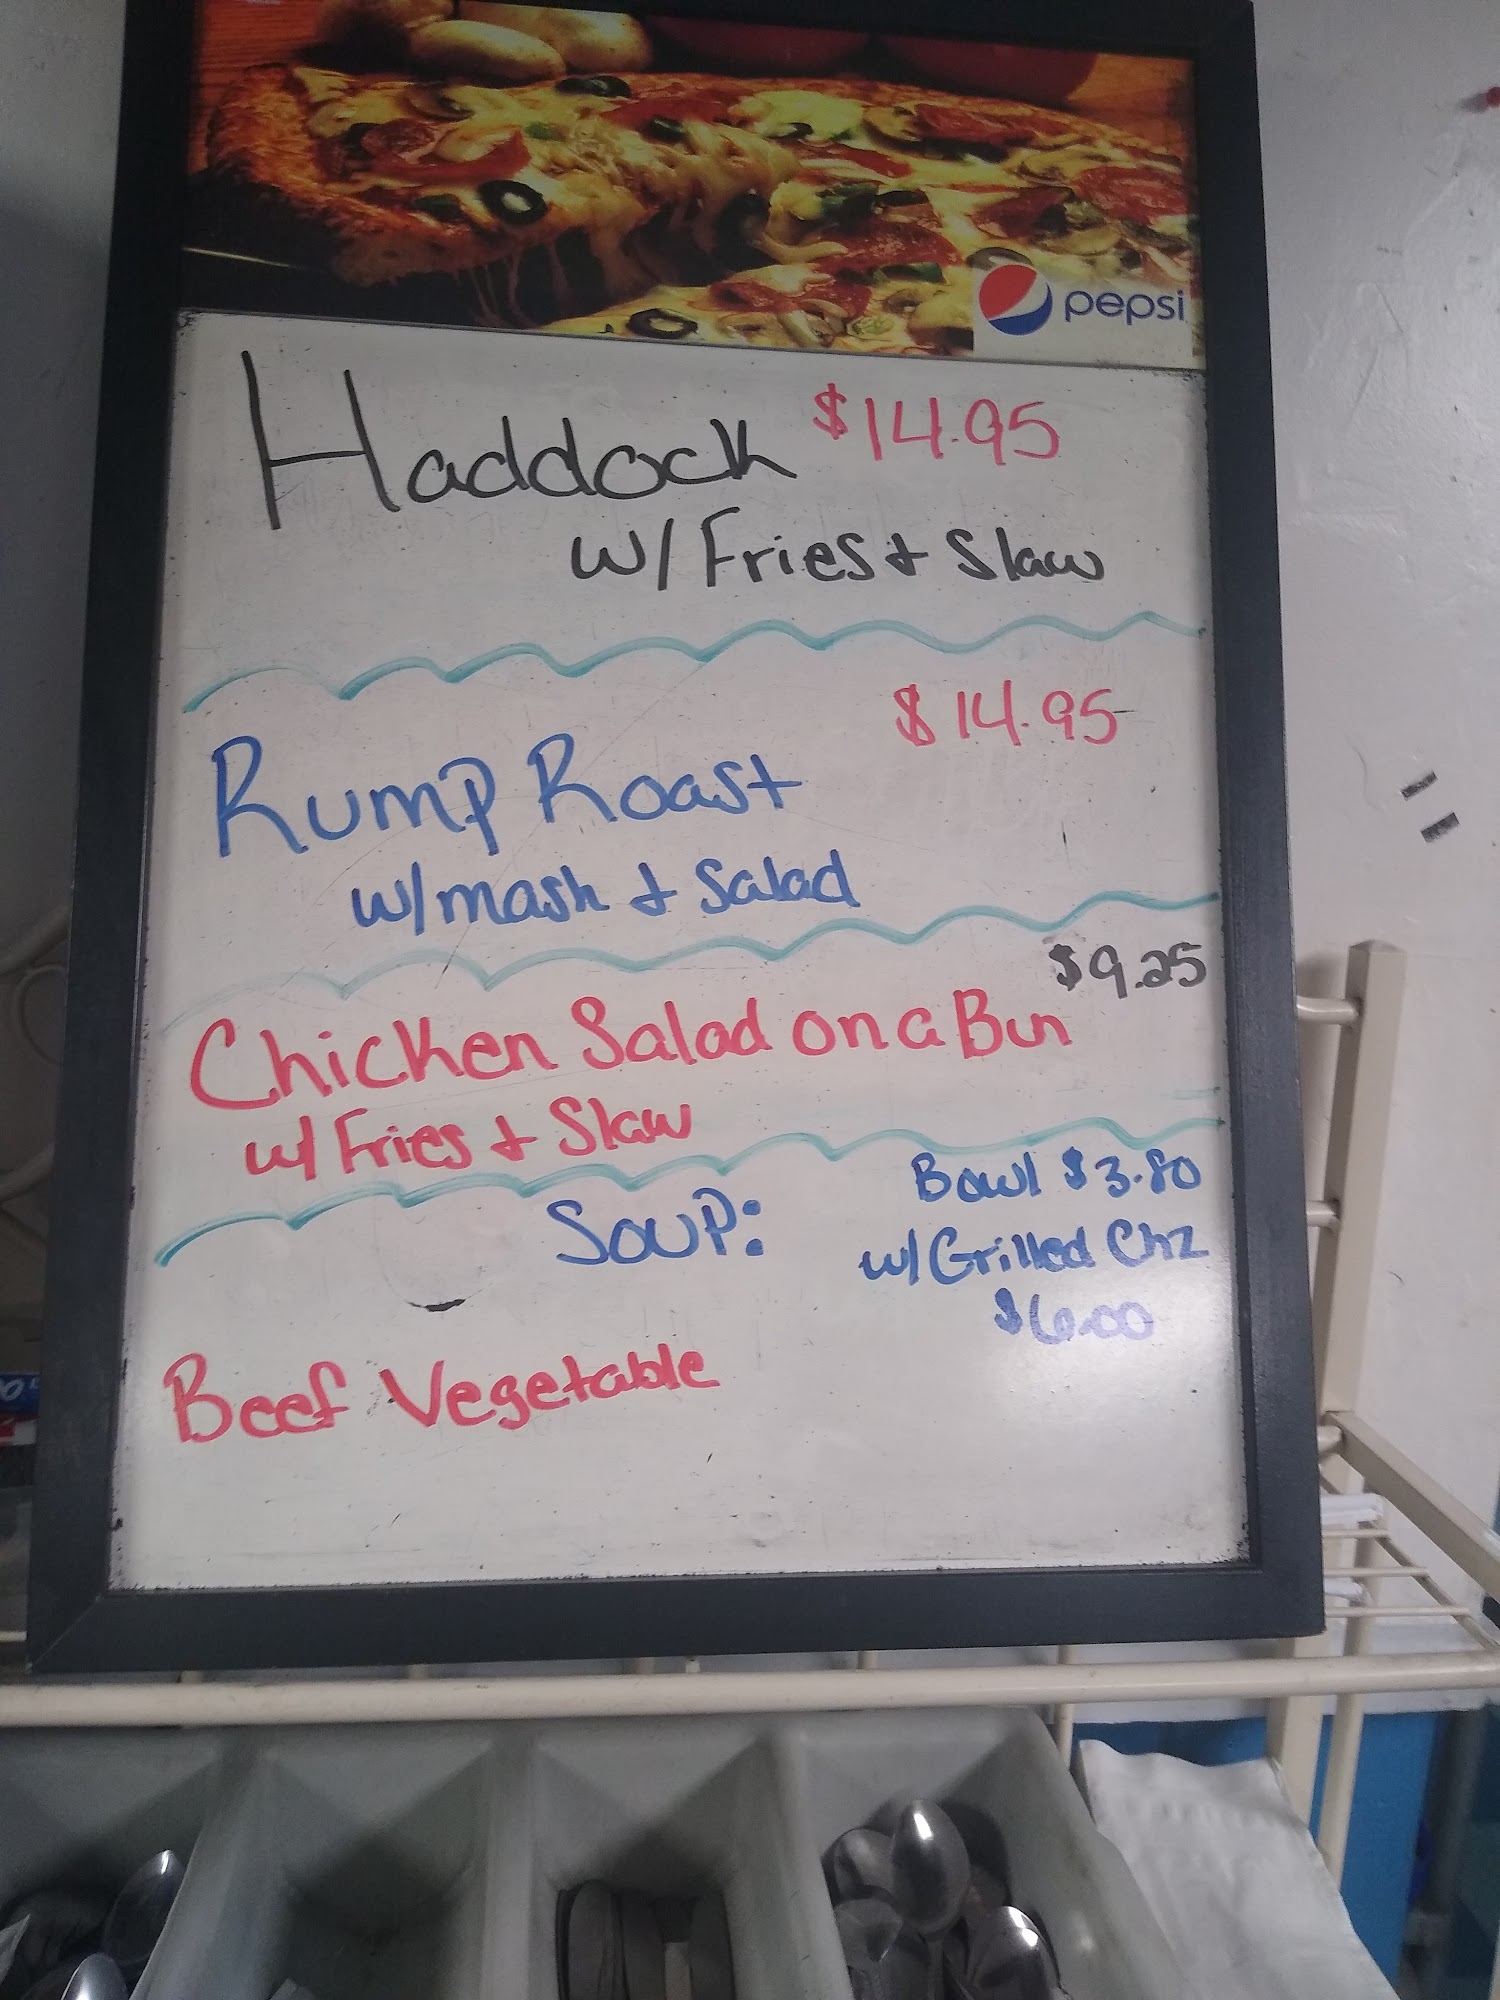 pepsi
Haddock $14.95
w/ Fries & Slaw
$14.95
Rump Roast
w/ mash & Salad
$9.25
Chicken Salad on a Bun
w/ Fries & Slaw
Soup: Bowl $3.80
w/ Grilled Chz
$6.00
Beef Vegetable